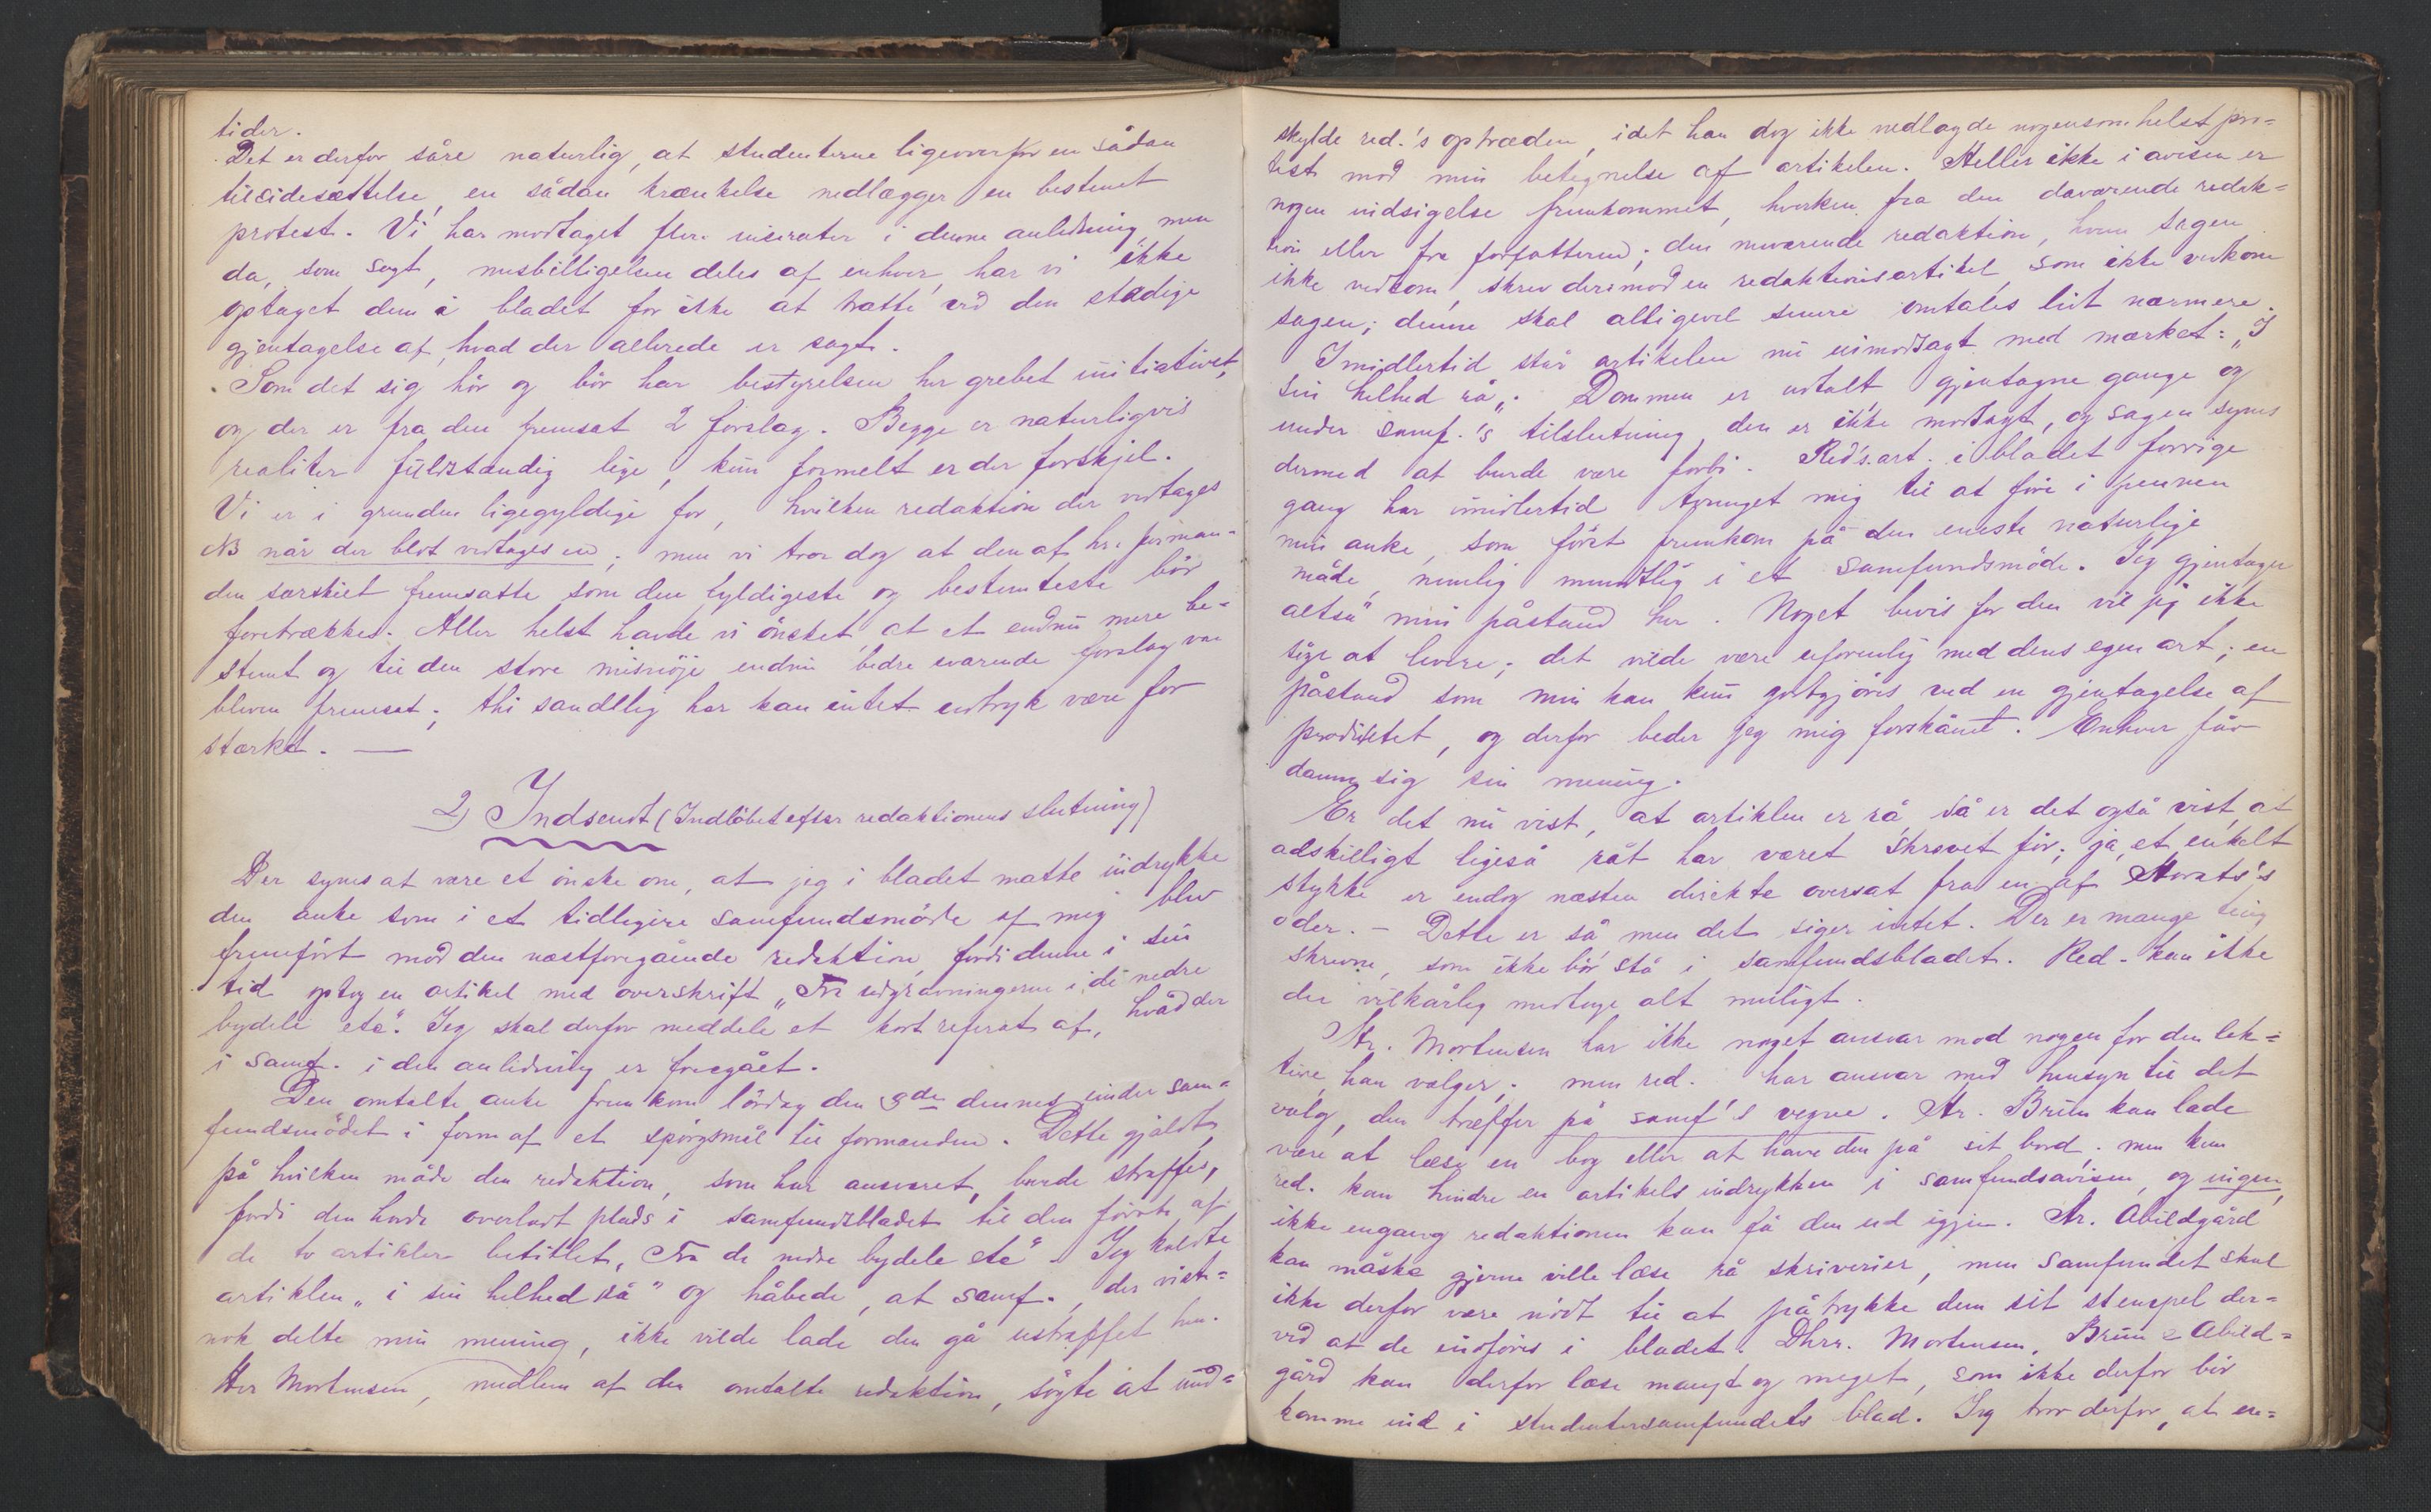 tider.
Det er derfor såre naturlig, at studenterne ligeoverfor en sådan
tilsidesættelse, en sådan krænkelse nedlægger en bestemt
protest. Vi har modtaget flere inserater i denne anledning, men
da, som sagt, misbilligelsen deles af enhver, har vi ikke
optaget dem i bladet for ikke at trætte ved den stadige
gjentagelse af, hvad der allerede er sagt.
Som det sig hör og bör har bestyrelsen her grebet initiativet,
og der er fra den fremsat 2 forslag. Begge er naturligvis
realiter fuldstændig lige, kun formelt er der forskjel.
Vi er i grunden ligegyldige for, hvilken redaktion der vedtages
NB når der blot vedtages en; men vi tror dog at den af hr. forman-
den særskilt fremsatte som den fyldigeste og bestemteste bör
foretrækkes. Aller helst havde vi önsket, at et endnu mere be-
stemt og til den store misnöje endnu bedre svarende forslag var
bleven fremsat; thi sandelig her kan intet udtryk være for
stærkt. —
2) Indsendt (Indlöbet efter redaktionens slutning)
Der synes at være et önske om, at jeg i bladet måtte indrykke
den anke som i et tidligere samfundsmöde af mig blev
fremfört mod den næstforegående redaktion, fordi denne i sin
tid optog en artikel med overskrift „Fra udgravningerne i de nedre
bydele etc". Jeg skal derfor meddele et kort referat af, hvad der
i samf. i den anledning er foregået.
Den omtalte anke fremkom lördag den 3de dennes under sam-
fundsmödet i form af et spörgsmål til formanden. Dette gjaldt,
på hvilken måde den redaktion, som har ansvaret, burde straffes,
fordi den havde overladt plads i samfundsbladet til den förste af
de to artikler betitlet, „Fra de nedre bydele etc". Jeg kaldte
artiklen „i sin helhed rå" og håbede, at samf., der vist-
nok delte min mening, ikke vilde lade den gå ustraffet hen.
Her Mortensen, medlem af den omtalte redaktion, sögte at und-
skylde red.'s optræden, idet han dog ikke nedlagde nogensomhelst pro-
test mod min betegnelse af artikelen. Heller ikke i avisen er
nogen indsigelse fremkommet, hverken fra den daværende redak-
tion eller fra forfatteren; den nuværende redaktion, hvem sagen
ikke vedkom, skrev derimod en redaktionsartikel, som ikke vedkom
sagen; denne skal alligevel senere omtales lidt nærmere.
Imidlertid står artikelen nu uimodsagt med mærket: „I
sin helhed rå„. Dommen er udtalt gjentagne gange og
under samf.'s tilslutning, den er ikke modsagt, og sagen synes
dermed at burde være forbi. Red's. art. i bladet forrige
gang har imidlertid tvunget mig til at före i pennen
min anke, som först fremkom på den eneste naturlige
måde, nemlig mundtlig i et samfundsmöde. Jeg gjentager
altså min påstand her. Noget bevis for den vil jeg ikke
söge at levere; det vilde være uforenlig med dens egen art; en
påstand som min kan kun godtgjöres ved en gjentagelse af
produktet, og derfor beder jeg mig forskånet. Enhver får
danne sig sin mening.
Er det nu vist, at artiklen er rå, så er det også vist, at
adskilligt ligeså råt har været skrevet för; ja, et enkelt
stykke er endog næsten direkte oversat fra en af Horats's
oder. — Dette er så men det siger intet. Der er mange ting
skrevne, som ikke bör stå i samfundsbladet. Red. kan ikke
der vilkårlig medtage alt muligt.
Hr. Mortensen har ikke noget ansvar mod nogen for den lek-
türe, han vælger; men red. har ansvar med hensyn til det
valg, den træffer på samf's vegne. Hr. Brun kan lade
være at læse en bog eller at have den på sit bord; men kun
red. kan hindre en artikels indrykken i samfundsavisen, og ingen,
ikke engang redaktionen kan få den ud igjen. Hr. Abildgård
kan måske gjerne ville læse rå skriverier, men samfundet skal
ikke derfor være nödt til at påtrykke dem sit stempel der-
ved at de indföres i bladet. Dhrr. Mortensen, Brun & Abild-
gård kan derfor læse mangt og meget, som ikke derfor bör
komme ind i studentersamfundets blad. Jeg tror derfor, at en-